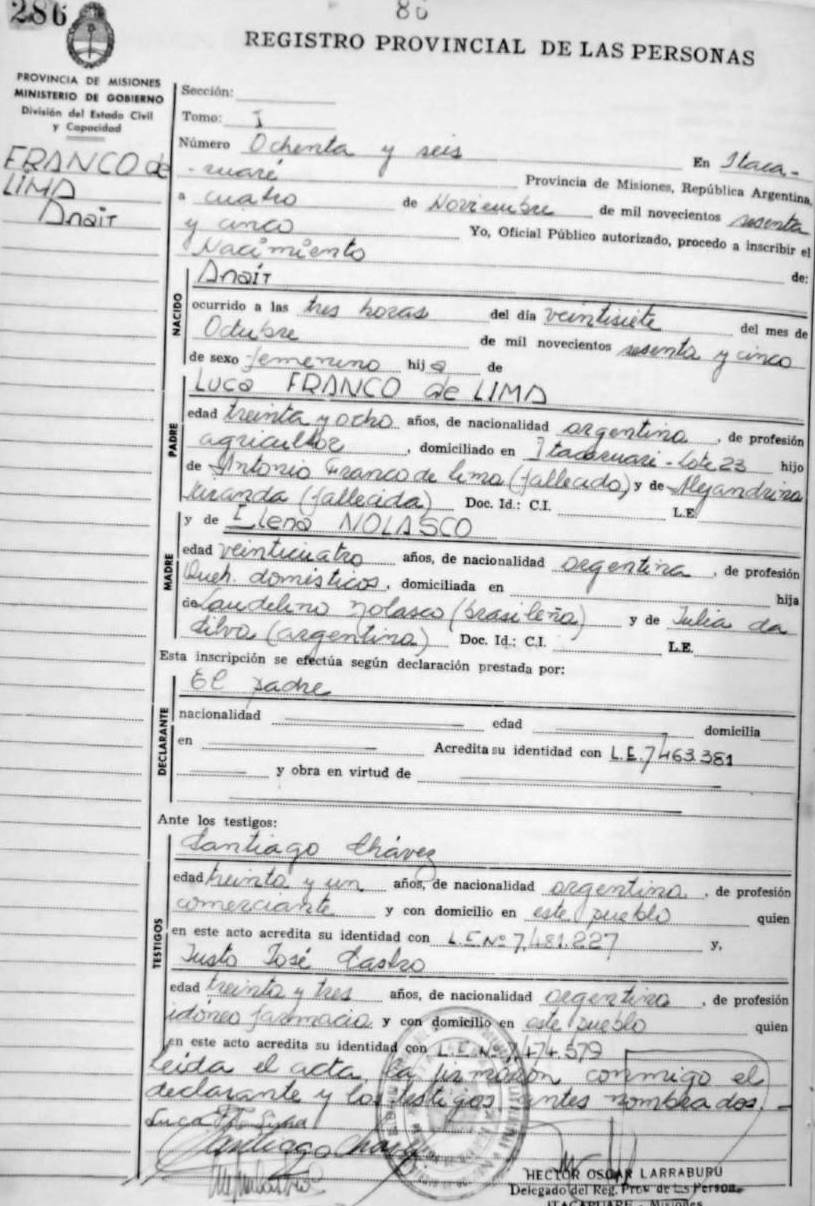 286
86
REGISTRO PROVINCIAL DE LAS PERSONAS
PROVINCIA DE MISIONES
MINISTERIO DE GOBIERNO
División del Estado Civil
y Capacidad
FRANCO de
LIMA
Anait
Sección:
Tomo: I
Número Ochenta y seis En Itaca-
-ruaré Provincia de Misiones, República Argentina,
a cuatro de Noviembre de mil novecientos sesenta
y cinco Yo, Oficial Público autorizado, procedo a inscribir el
Nacimiento de:
NACIDO
Anait
ocurrido a las tres horas del día veintisiete del mes de
Octubre de mil novecientos sesenta y cinco
de sexo femenino hija de
PADRE
Luca FRANCO de LIMA
edad treinta y ocho años, de nacionalidad argentina, de profesión
agricultor, domiciliado en Itacaruari - Lote 23 hijo
de Antonio Franco de Lima (fallecido) y de Alejandrina
Miranda (fallecida) Doc. Id.: C.I. L.E
MADRE
y de Elena NOLASCO
edad veinticuatro años, de nacionalidad argentina, de profesión
Queh. domésticos, domiciliada en hija
de Laudelino Nolasco (brasileña) y de Julia da
Silva (argentina) Doc. Id.: C.I. L.E.
Esta inscripción se efectúa según declaración prestada por:
DECLARANTE
El padre
nacionalidad edad domicilia
en Acredita su identidad con L.E. 7463.381
y obra en virtud de
Ante los testigos:
TESTIGOS
Santiago Chávez
edad treinta y un años, de nacionalidad argentina, de profesión
comerciante y con domicilio en este pueblo quien
en este acto acredita su identidad con L.E. Nº 7.481.227 y,
Justo José Castro
edad treinta y tres años, de nacionalidad argentina, de profesión
idóneo farmacia y con domicilio en este pueblo quien
en este acto acredita su identidad con L.E. Nº 7.474.579
Leída el acta, la firmaron conmigo el
declarante y los testigos antes nombrados.-
Luca
Santiago Chavez
HECTOR OSCAR LARRABURU
Delegado del Reg. Prov. de las Personas
ITACARUARE - Misiones